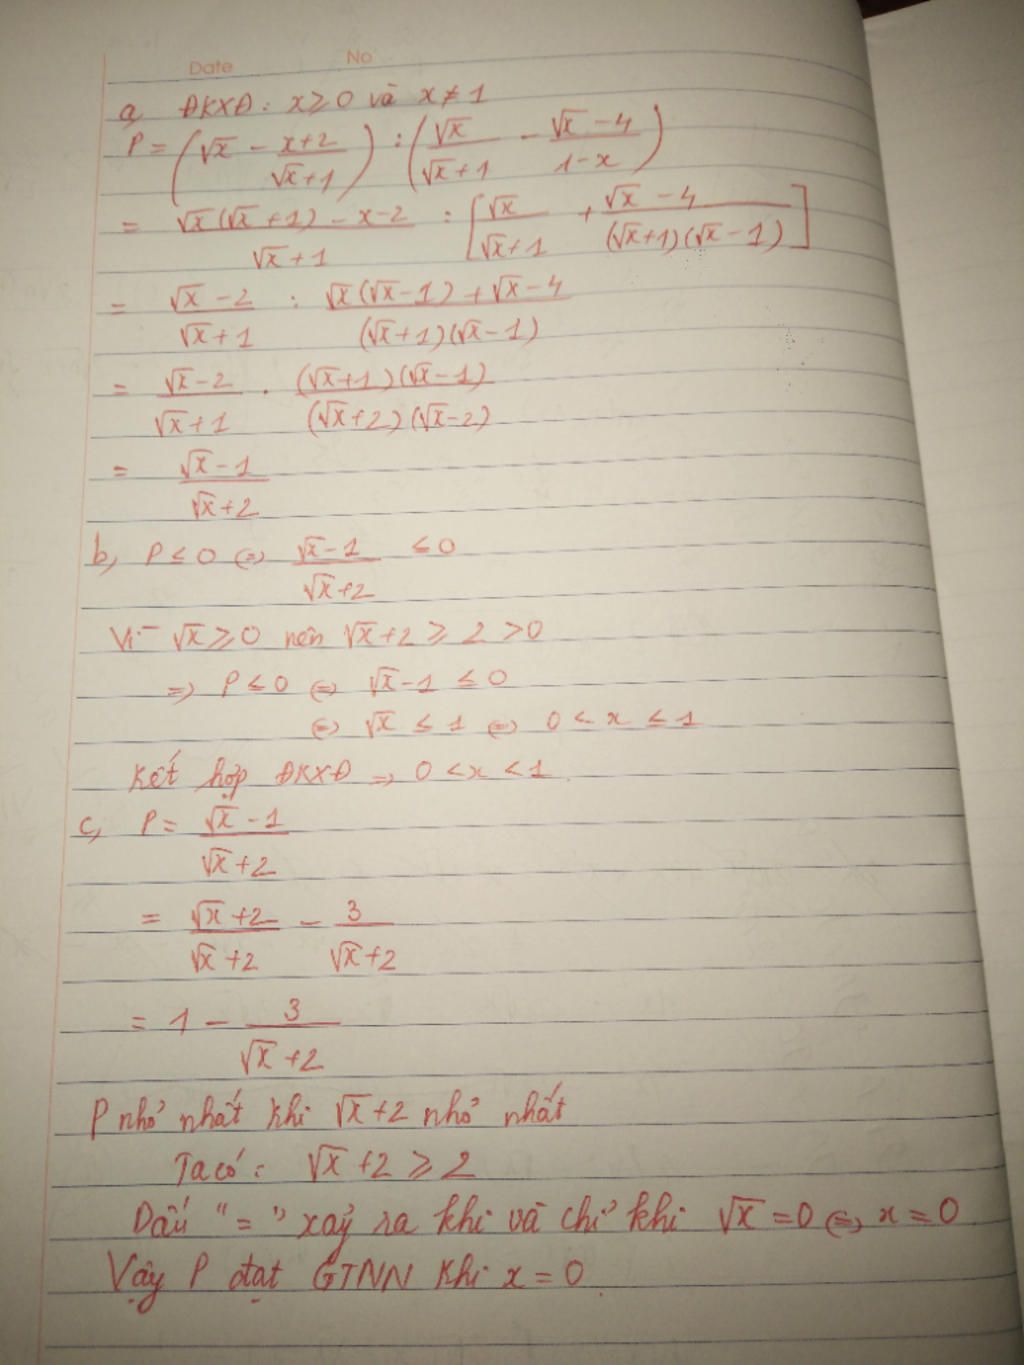 Date No
a, ĐKXĐ: x ≥ 0 và x ≠ 1
P = (√x - (x+2)/(√x+1)) : (√x/(√x+1) - (√x-4)/(1-x))
= (√x(√x+1)-x-2)/(√x+1) : [√x/(√x+1) + (√x-4)/((√x+1)(√x-1))]
= (√x-2)/(√x+1) : (√x(√x-1)+√x-4)/((√x+1)(√x-1))
= (√x-2)/(√x+1) . ((√x+1)(√x-1))/((√x+2)(√x-2))
= (√x-1)/(√x+2)
b, P ≤ 0 ⇔ (√x-1)/(√x+2) ≤ 0
Vì √x ≥ 0 nên √x+2 ≥ 2 > 0
⇒ P ≤ 0 ⇔ √x-1 ≤ 0
⇔ √x ≤ 1 ⇔ 0 < x ≤ 1
Kết hợp ĐKXĐ ⇒ 0 < x < 1
c, P = (√x-1)/(√x+2)
= (√x+2)/(√x+2) - 3/(√x+2)
= 1 - 3/(√x+2)
P nhỏ nhất khi √x+2 nhỏ nhất
Ta có: √x+2 ≥ 2
Dấu "=" xảy ra khi và chỉ khi √x = 0 ⇔ x = 0
Vậy P đạt GTNN khi x = 0.